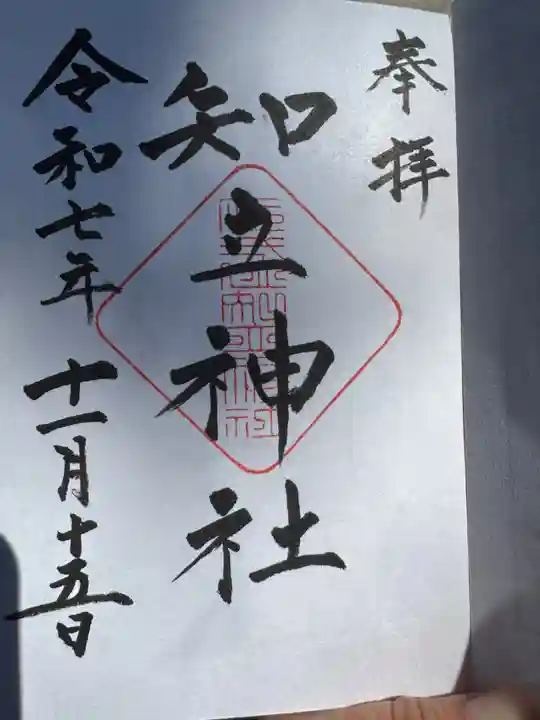 奉拝
知立神社
令和七年十一月十五日